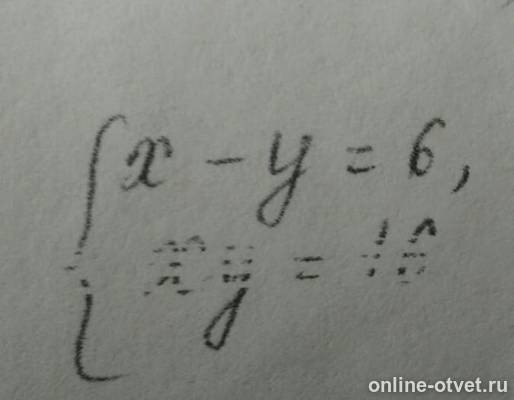 x - y = 6,
xy = 16
online-otvet.ru